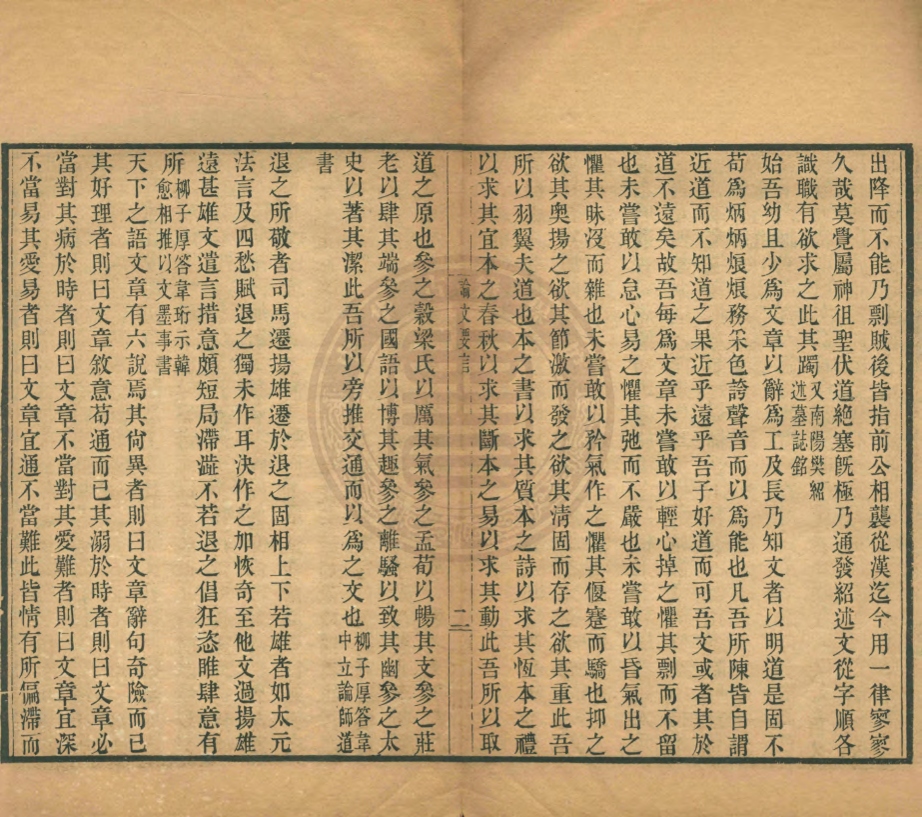 出降而不能乃剽賊後皆指前公相襲從漢迄今用一律寥寥
久哉莫覺屬神徂聖伏道絶塞旣極乃通發紹述文從字順各
識職有欲求之此其躅又南陽樊紹述墓誌銘
始吾幼且少爲文章以辭爲工及長乃知文者以明道是固不
苟爲炳炳烺烺務釆色誇聲音而以爲能也凡吾所陳皆自謂
近道而不知道之果近乎遠乎吾子好道而可吾文或者其於
道不遠矣故吾每爲文章未嘗敢以輕心掉之懼其剽而不留
也未嘗敢以怠心易之懼其弛而不嚴也未嘗敢以昏氣出之
懼其昧沒而雜也未嘗敢以矜氣作之懼其偃蹇而驕也抑之
欲其奧揚之欲其節激而發之欲其淸固而存之欲其重此吾
所以羽翼夫道也本之書以求其質本之詩以求其恆本之禮
以求其宜本之春秋以求其斷本之易以求其動此吾所以取
論文要言
二
道之原也參之穀梁氏以厲其氣參之孟荀以暢其支參之莊
老以肆其端參之國語以博其趣參之離騷以致其幽參之太
史以著其潔此吾所以旁推交通而以爲之文也柳子厚答韋中立論師道
書
退之所敬者司馬遷揚雄遷於退之固相上下若雄者如太元
法言及四愁賦退之獨未作耳決作之加恢奇至他文過揚雄
遠甚雄文遣言措意頗短局滯澁不若退之倡狂恣睢肆意有
所柳子厚答韋珩示韓愈相推以文墨事書
天下之語文章有六說焉其尙異者則曰文章辭句奇險而已
其好理者則曰文章敘意苟通而已其溺於時者則曰文章必
當對其病於時者則曰文章不當對其愛難者則曰文章宜深
不當易其愛易者則曰文章宜通不當難此皆情有所偏滯而